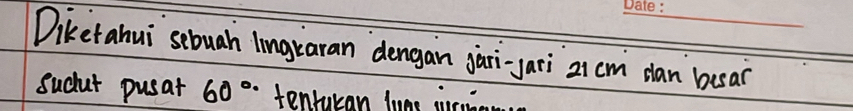 Date :
Diketahui sebuah lingkaran dengan jari-jari 21 cm dan besar
sudut pusat 60°. tentukan luas